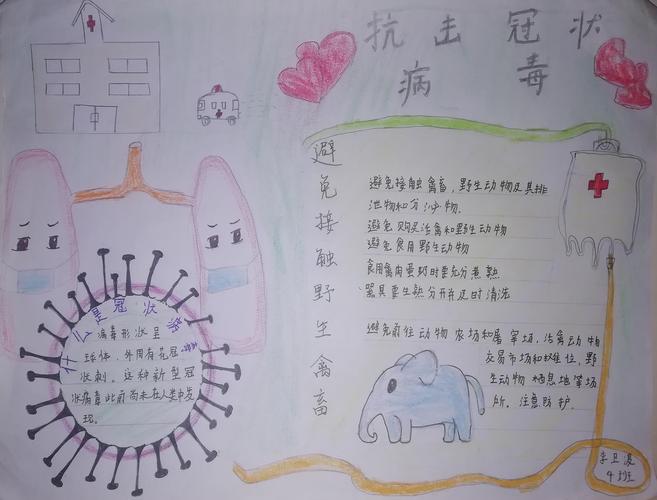 抗击冠状
病毒
避免接触野生禽畜
避免接触禽畜,野生动物及其排
泄物和分泌物.
避免购买活禽和野生动物
避免食用野生动物
食用禽肉蛋奶时要充分煮熟
器具要生熟分开并及时清洗
避免前往动物农场和屠宰场、活禽动物
交易市场和摊位,野
生动物栖息地等场
所。注意防护.
什么是冠状
病毒形状呈
球体,外周有花冠
状刺。这种新型冠
状病毒此前尚未在人类中发
现.
4班